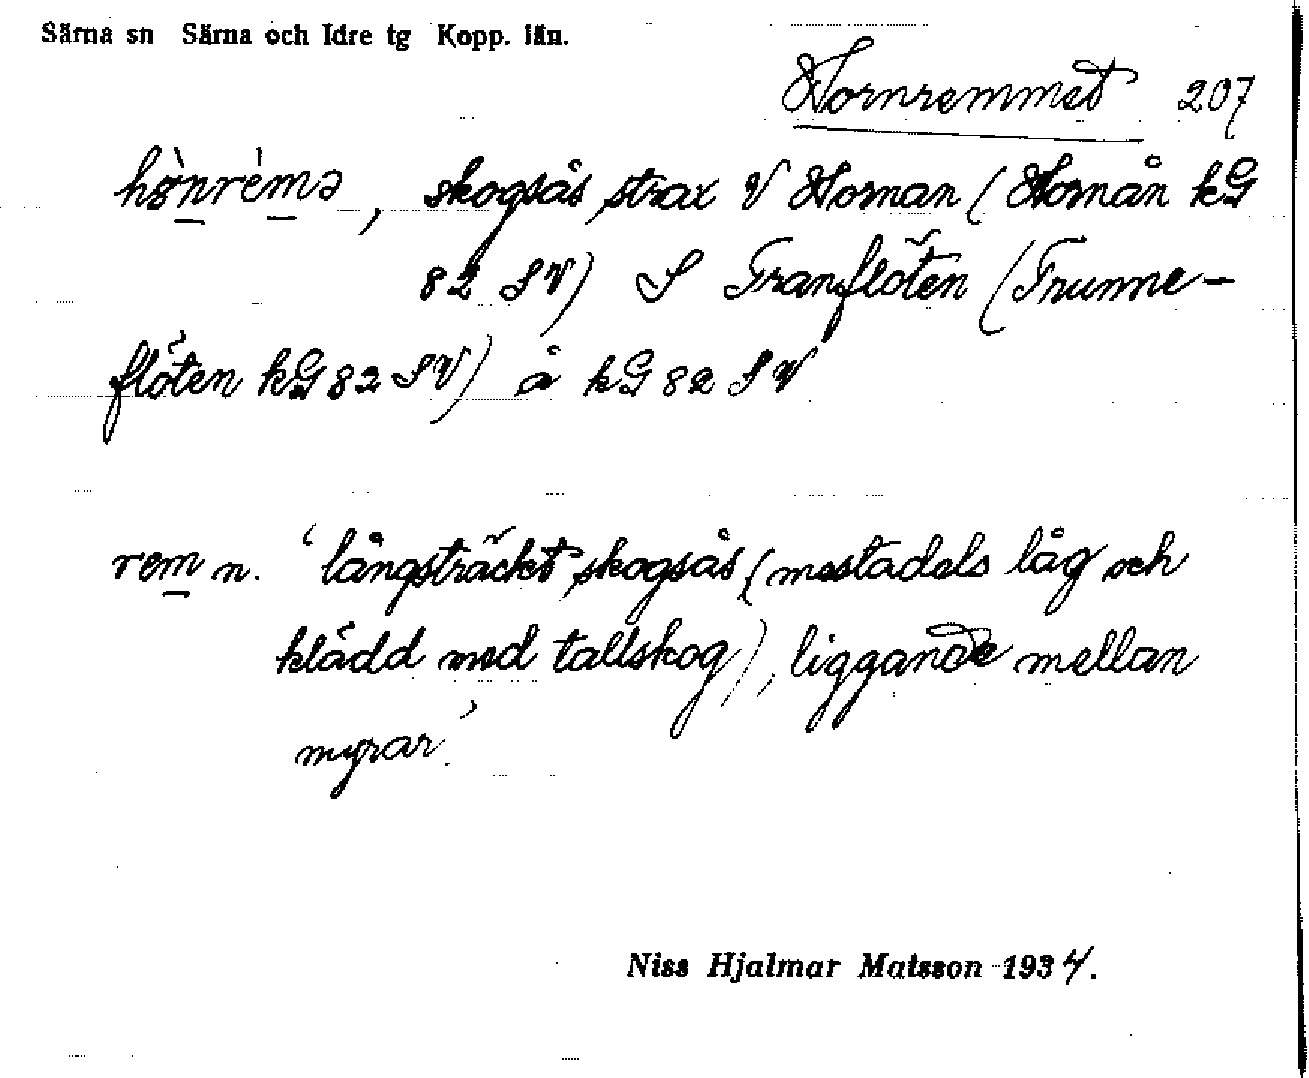 Särna sn Särna och Idre tg Kopp. län.
Hornremmet 207
skogsås strax V Hornan (Hornån kG
82 SV) S Tranflöten (Trunne-
flöten kG 82 SV) å kG 82 SV
rem n. ‘långsträckt skogsås (mestadels låg och
klädd med tallskog), liggande mellan
myrar’.
Niss Hjalmar Matsson 1934.